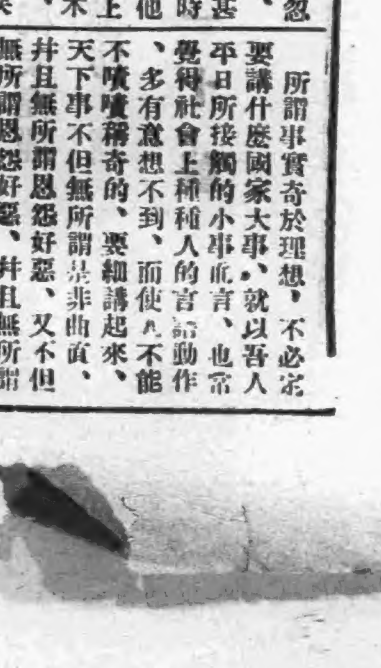 忽
、甚
時
他
上
木
所謂事實奇於理想，不必定
要講什麼國家大事、就以吾人
平日所接觸的小事而言、也常
覺得社會上種種人的言語動作
、多有意想不到、而使人不能
不嘖嘖稱奇的、要細講起來、
天下事不但無所謂是非曲直、
幷且無所謂恩怨好惡、又不但
無所謂恩怨好惡、幷且無所謂